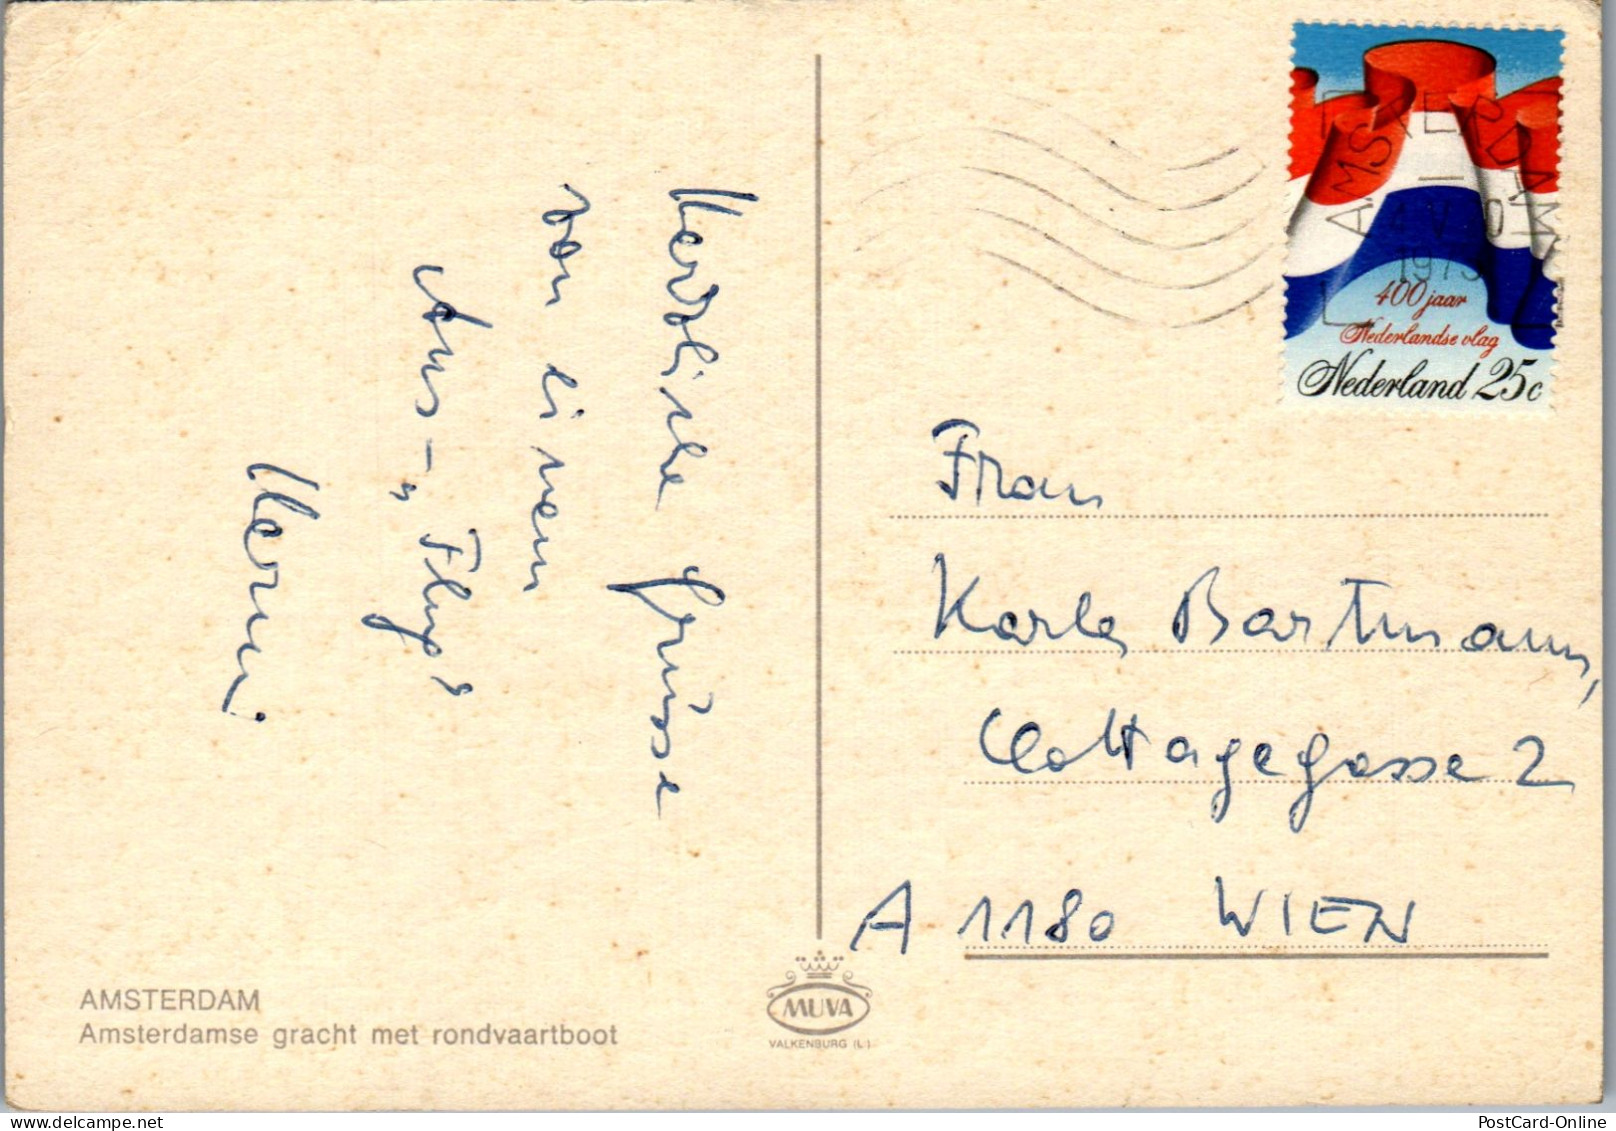 Herzliche Grüsse
von einem
Aus-„Flug“
Hermi
AMSTERDAM
Amsterdamse gracht met rondvaartboot
MUVA
VALKENBURG (L.)
AMSTERDAM
1973
400 jaar
Nederlandse vlag
Nederland 25c
Frau
Karla Bartmann,
Cottagegasse 2
A 1180 WIEN
PostCard-Online